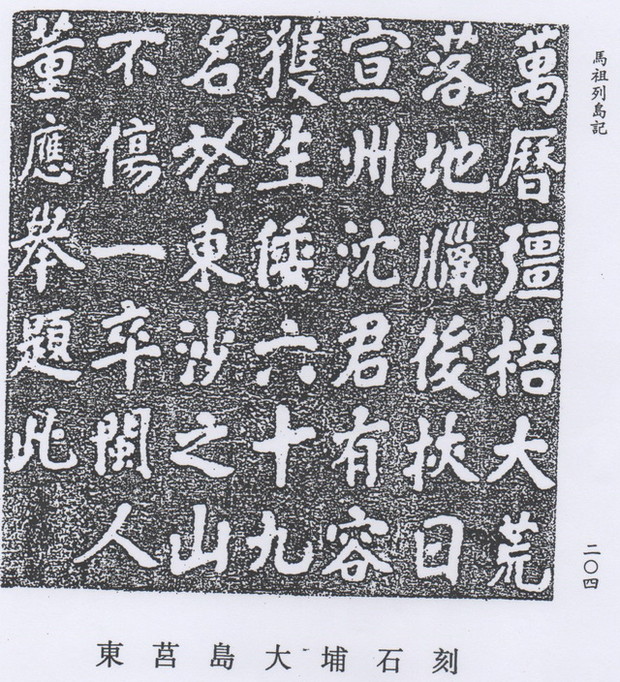 馬祖列島記
萬曆彊梧大荒
落地臘後挾日
宣州沈君有容
獲生倭六十九
名於東沙之山
不傷一卒閩人
董應舉題此
二〇四
東莒島大埔石刻